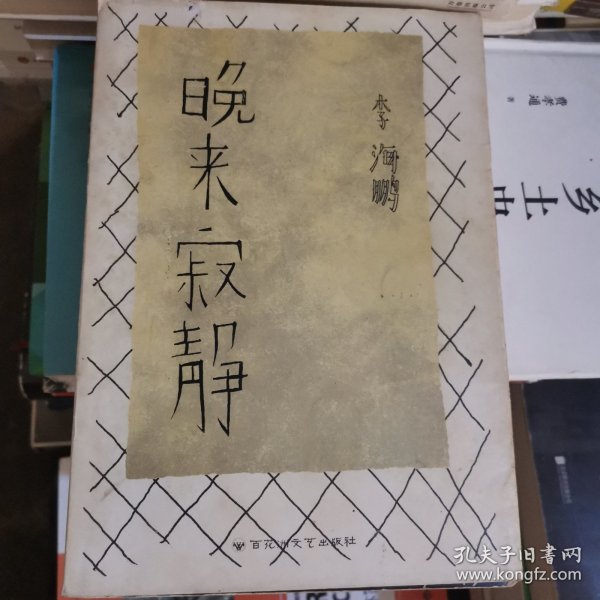 晚来寂静
李海鹏
百花洲文艺出版社
费孝通 著
乡土中
孔夫子旧书网
www.kongfz.com